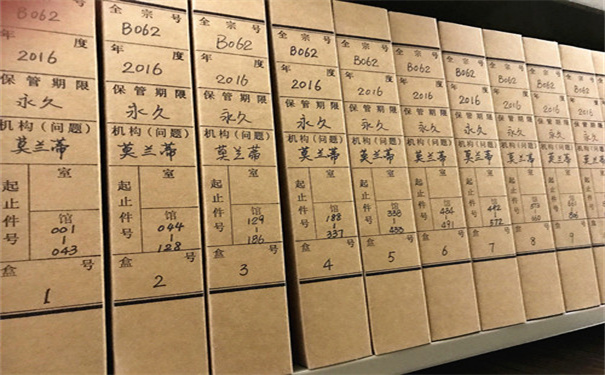 全宗号
B062
年度
2016
保管期限
永久
机构(问题)
莫兰蒂
起止件号
室
馆
001
-
043
盒号
1
全宗号
B062
年度
2016
保管期限
永久
机构(问题)
莫兰蒂
起止件号
室
馆
044
-
128
盒号
2
全宗号
B062
年度
2016
保管期限
永久
机构(问题)
莫兰蒂
起止件号
室
馆
129
-
186
盒号
3
全宗号
B062
年度
2016
保管期限
永久
机构(问题)
莫兰蒂
起止件号
室
馆
188
-
337
盒号
4
全宗号
B062
年度
2016
保管期限
永久
机构(问题)
莫兰蒂
起止件号
室
馆
338
-
盒号
5
全宗号
B062
年度
2016
保管期限
永久
机构(问题)
莫兰蒂
起止件号
室
馆
484
-
491
盒号
6
全宗号
B062
年度
2016
保管期限
永久
机构(问题)
莫兰蒂
起止件号
室
馆
492
-
572
盒号
7
全宗号
B062
年度
2016
保管期限
永久
机构(问题)
莫兰蒂
起止件号
室
馆
盒号
8
全宗号
B062
年度
2016
保管期限
永久
机构(问题)
莫兰蒂
起止件号
室
馆
盒号
9